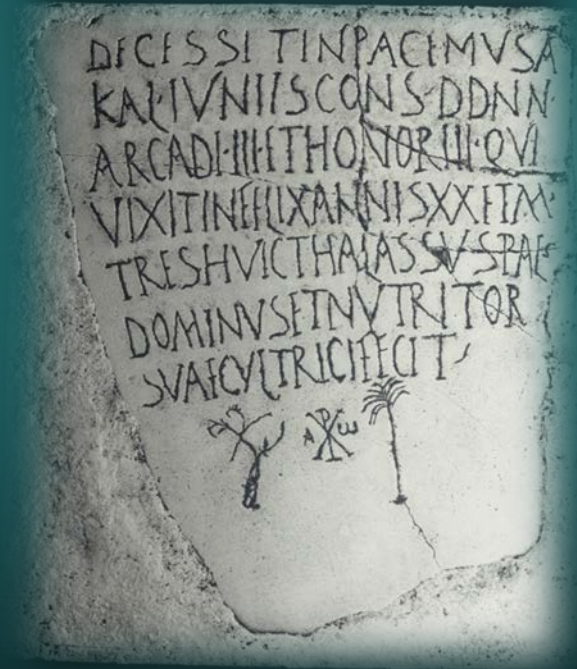 DECESSITINPACEMVSA
KAL·IVNIISCONS·DDNN·
ARCADI·IIII·ETHONORIII·QVI
VIXITINFELIXANNISXXETM
TRESHVICTHALASSVSPAE
DOMINVSETNVTRITOR
SVAECVLTRICIFECIT
A ☧ ω